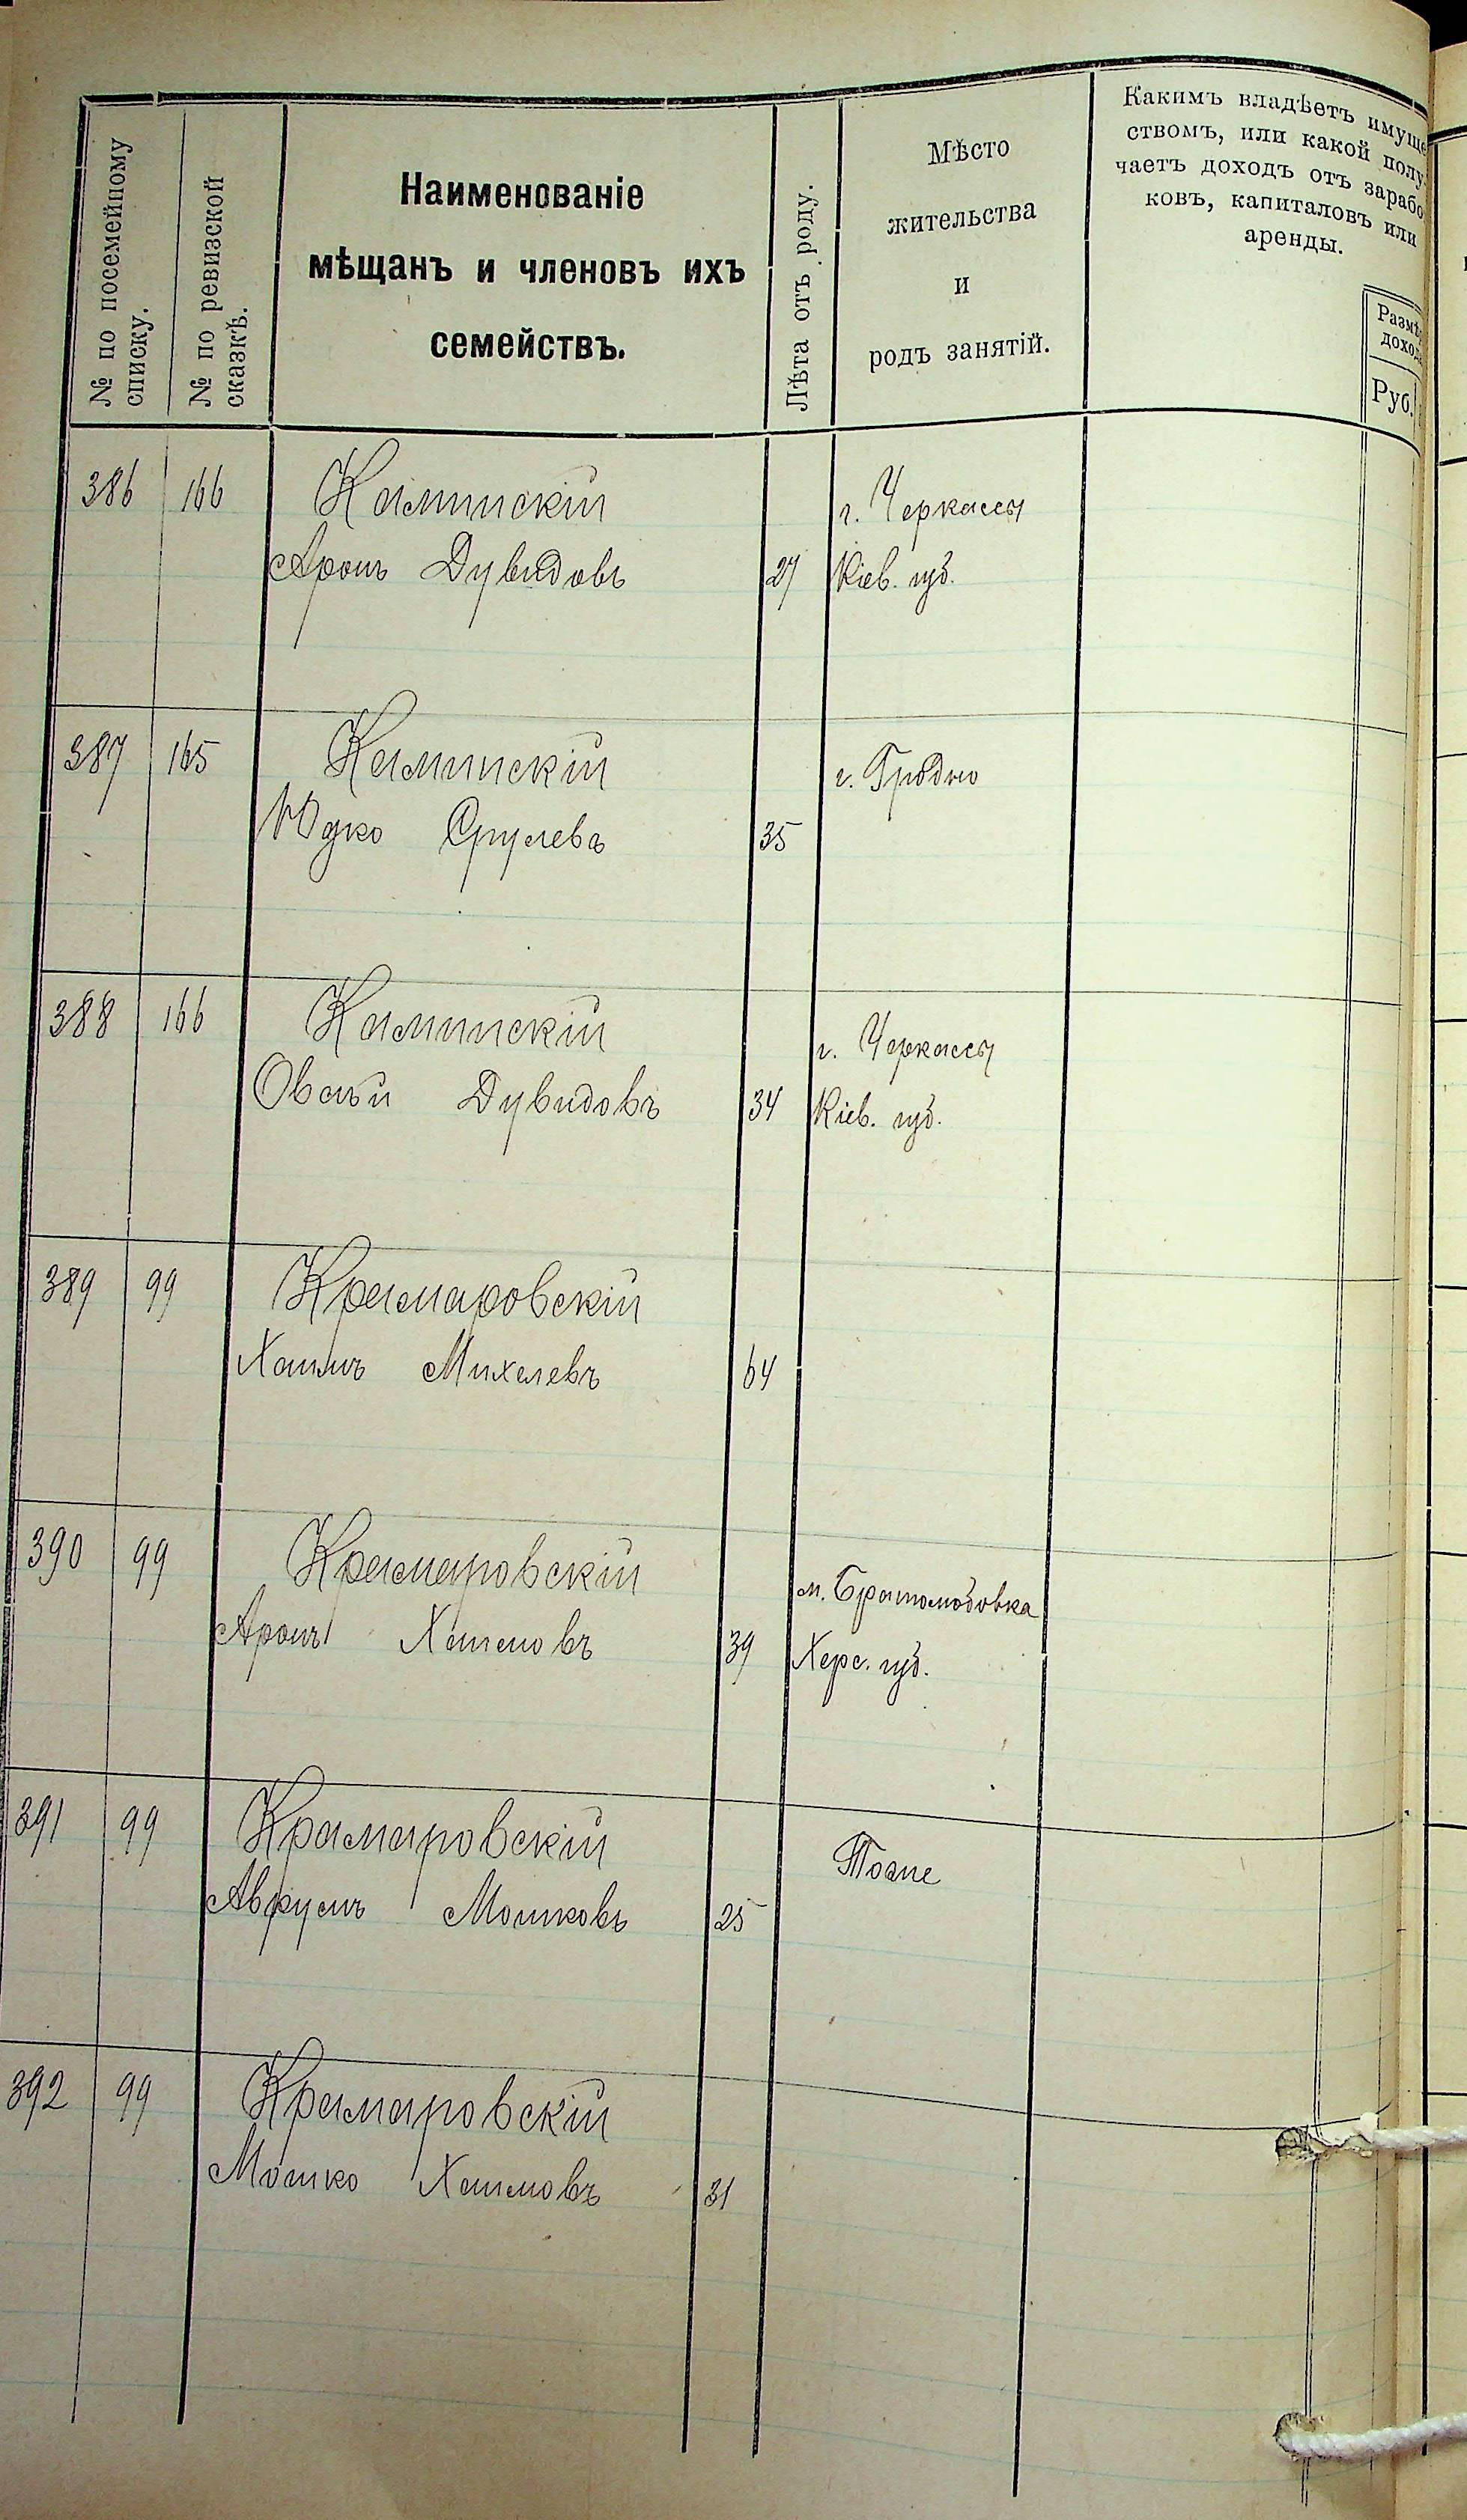 № по посемейному
списку.
№ по ревизской
сказкѣ.
Наименованіе
мѣщанъ и членовъ ихъ
семействъ.
Лѣта отъ роду.
Мѣсто
жительства
и
родъ занятій.
Какимъ владѣетъ имуще
ствомъ, или какой полу-
чаетъ доходъ отъ зарабо
ковъ, капиталовъ или
аренды.
Размѣ
доход
Руб.
386 166 Каминскій г. Черкассы
Аронъ Дувидовъ 27 Кіев. губ.
387 165 Каминскій г. Гродно
Юдко Срулевъ 35
388 166 Каминскій г. Черкассы
Овсѣй Дувидовъ 34 Кіев. губ.
389 99 Крамаровскій
Хаимъ Михелевъ 64
390 99 Крамаровскій м. Братолюбовка
Аронъ Хаимовъ 39 Херс. губ.
391 99 Крамаровскій Тоже
Аврумъ Мошковъ 25
392 99 Крамаровскій
Мошко Хаимовъ 31